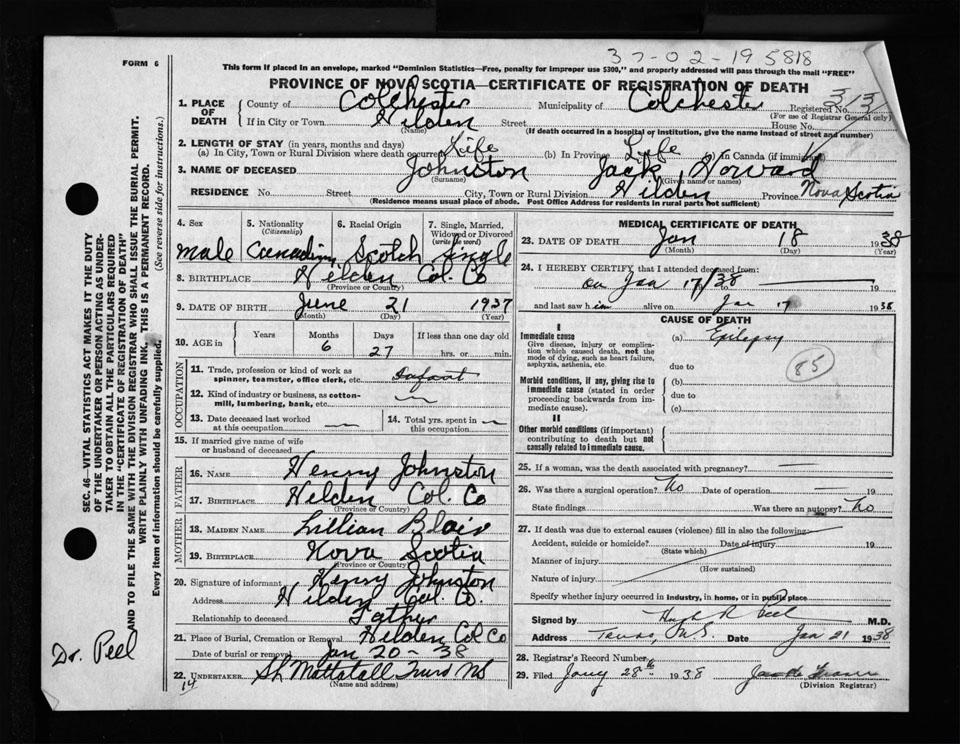 37-02-195818
FORM 6
This form if placed in an envelope, marked "Dominion Statistics—Free, penalty for improper use $300," and properly addressed will pass through the mail "FREE"
PROVINCE OF NOVA SCOTIA—CERTIFICATE OF REGISTRATION OF DEATH
1. PLACE OF DEATH
County of Colchester Municipality of Colchester Registered No. 313
(For use of Registrar General only)
If in City or Town Hilden Street House No.
(Name) (If death occurred in a hospital or institution, give the name instead of street and number)
2. LENGTH OF STAY (in years, months and days)
(a) In City, Town or Rural Division where death occurred Life (b) In Province Life In Canada (if immigrant)
3. NAME OF DECEASED Johnston Jack Howard
(Surname) (Given name or names)
RESIDENCE No. Street City, Town or Rural Division Hilden Province Nova Scotia
(Residence means usual place of abode. Post Office Address for residents in rural parts not sufficient)
4. Sex Male
5. Nationality (Citizenship) Canadian
6. Racial Origin Scotch
7. Single, Married, Widowed or Divorced (write the word) Single
8. BIRTHPLACE Hilden Col. Co
(Province or Country)
9. DATE OF BIRTH June 21 1937
(Month) (Day) (Year)
10. AGE in Years Months 6 Days 27 If less than one day old hrs. or min.
OCCUPATION
11. Trade, profession or kind of work as spinner, teamster, office clerk, etc. Infant
12. Kind of industry or business, as cotton-mill, lumbering, bank, etc.
13. Date deceased last worked at this occupation
14. Total yrs. spent in this occupation
15. If married give name of wife or husband of deceased
FATHER
16. NAME Henry Johnston
17. BIRTHPLACE Hilden Col. Co
(Province or Country)
MOTHER
18. MAIDEN NAME Lillian Blair
19. BIRTHPLACE Nova Scotia
(Province or Country)
20. Signature of informant Henry Johnston
Address Hilden Col. Co.
Relationship to deceased Father
21. Place of Burial, Cremation or Removal Hilden Col Co
Date of burial or removal Jan 20 - 38
22. UNDERTAKER Mattatall Truro NS
(Name and address)
14
MEDICAL CERTIFICATE OF DEATH
23. DATE OF DEATH Jan 18 1938
(Month) (Day) (Year)
24. I HEREBY CERTIFY that I attended deceased from:
on Jan 17/38
and last saw h im alive on Jan 17 1938
CAUSE OF DEATH
I
Immediate cause
Give disease, injury or complication which caused death, not the mode of dying, such as heart failure, asphyxia, asthenia, etc.
(a) Epilepsy
due to
85
Morbid conditions, if any, giving rise to immediate cause (stated in order proceeding backwards from immediate cause).
(b)
due to
(c)
II
Other morbid conditions (if important) contributing to death but not causally related to immediate cause.
25. If a woman, was the death associated with pregnancy?
26. Was there a surgical operation? No Date of operation 19
State findings Was there an autopsy? No
27. If death was due to external causes (violence) fill in also the following:
Accident, suicide or homicide? Date of injury 19
(State which)
Manner of injury
(How sustained)
Nature of injury
Specify whether injury occurred in industry, in home, or in public place
Signed by Hugh R Peel M.D.
Address Truro, N.S. Date Jan 21 1938
28. Registrar's Record Number
29. Filed Jany 28th 1938
(Division Registrar)
SEC. 46—VITAL STATISTICS ACT MAKES IT THE DUTY
OF THE UNDERTAKER OR PERSON ACTING AS UNDER-
TAKER TO OBTAIN ALL THE PARTICULARS REQUIRED
IN THE "CERTIFICATE OF REGISTRATION OF DEATH"
AND TO FILE THE SAME WITH THE DIVISION REGISTRAR WHO SHALL ISSUE THE BURIAL PERMIT.
WRITE PLAINLY WITH UNFADING INK. THIS IS A PERMANENT RECORD.
Every item of information should be carefully supplied. (See reverse side for instructions.)
Dr. Peel